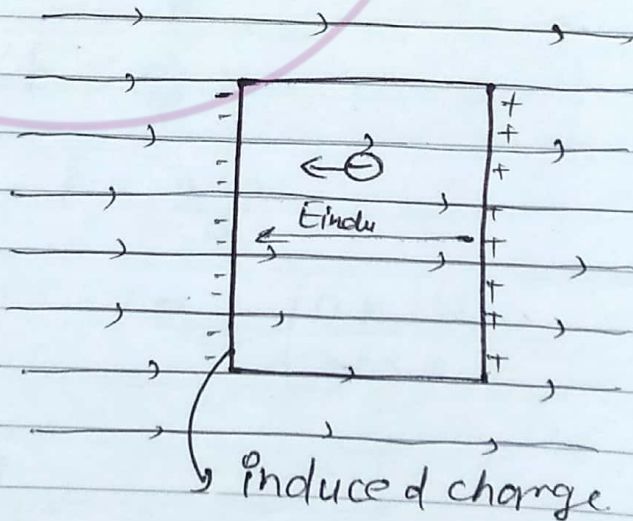 Eindu
induced charge